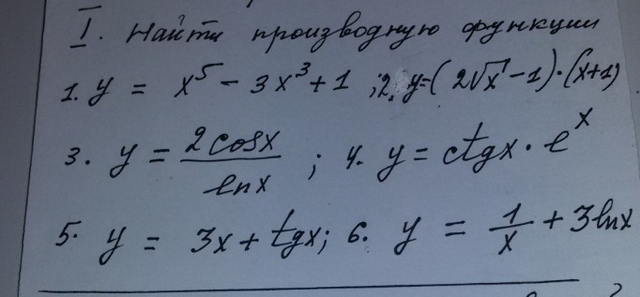 I. Найти производную функции
1. y = x⁵ - 3x³ + 1 ; 2. y=(2√x - 1)·(x+1)
3. y = 2cosx / lnx ; 4. y = ctgx · eˣ
5. y = 3x + tgx; 6. y = 1/x + 3lnx